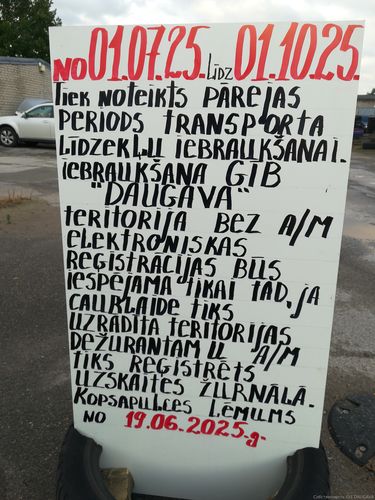 NO 01.07.25. LĪDZ 01.10.25.
TIEK NOTEIKTS PĀREJAS
PERIODS TRANSPORTA
LĪDZEKĻU IEBRAUKŠANAI.
IEBRAUKŠANA GĪB
"DAUGAVA"
TERITORIJĀ BEZ A/M
ELEKTRONISKAS
REĢISTRĀCIJAS BŪS
IESPĒJAMA TIKAI TAD, JA
CAURLAIDE TIKS
UZRĀDĪTA TERITORIJAS
DEŽURANTAM U A/M
TIKS REĢISTRĒTS
UZSKAITES ŽURNĀLĀ.
KOPSAPULCES LĒMUMS
NO 19.06.2025.g.